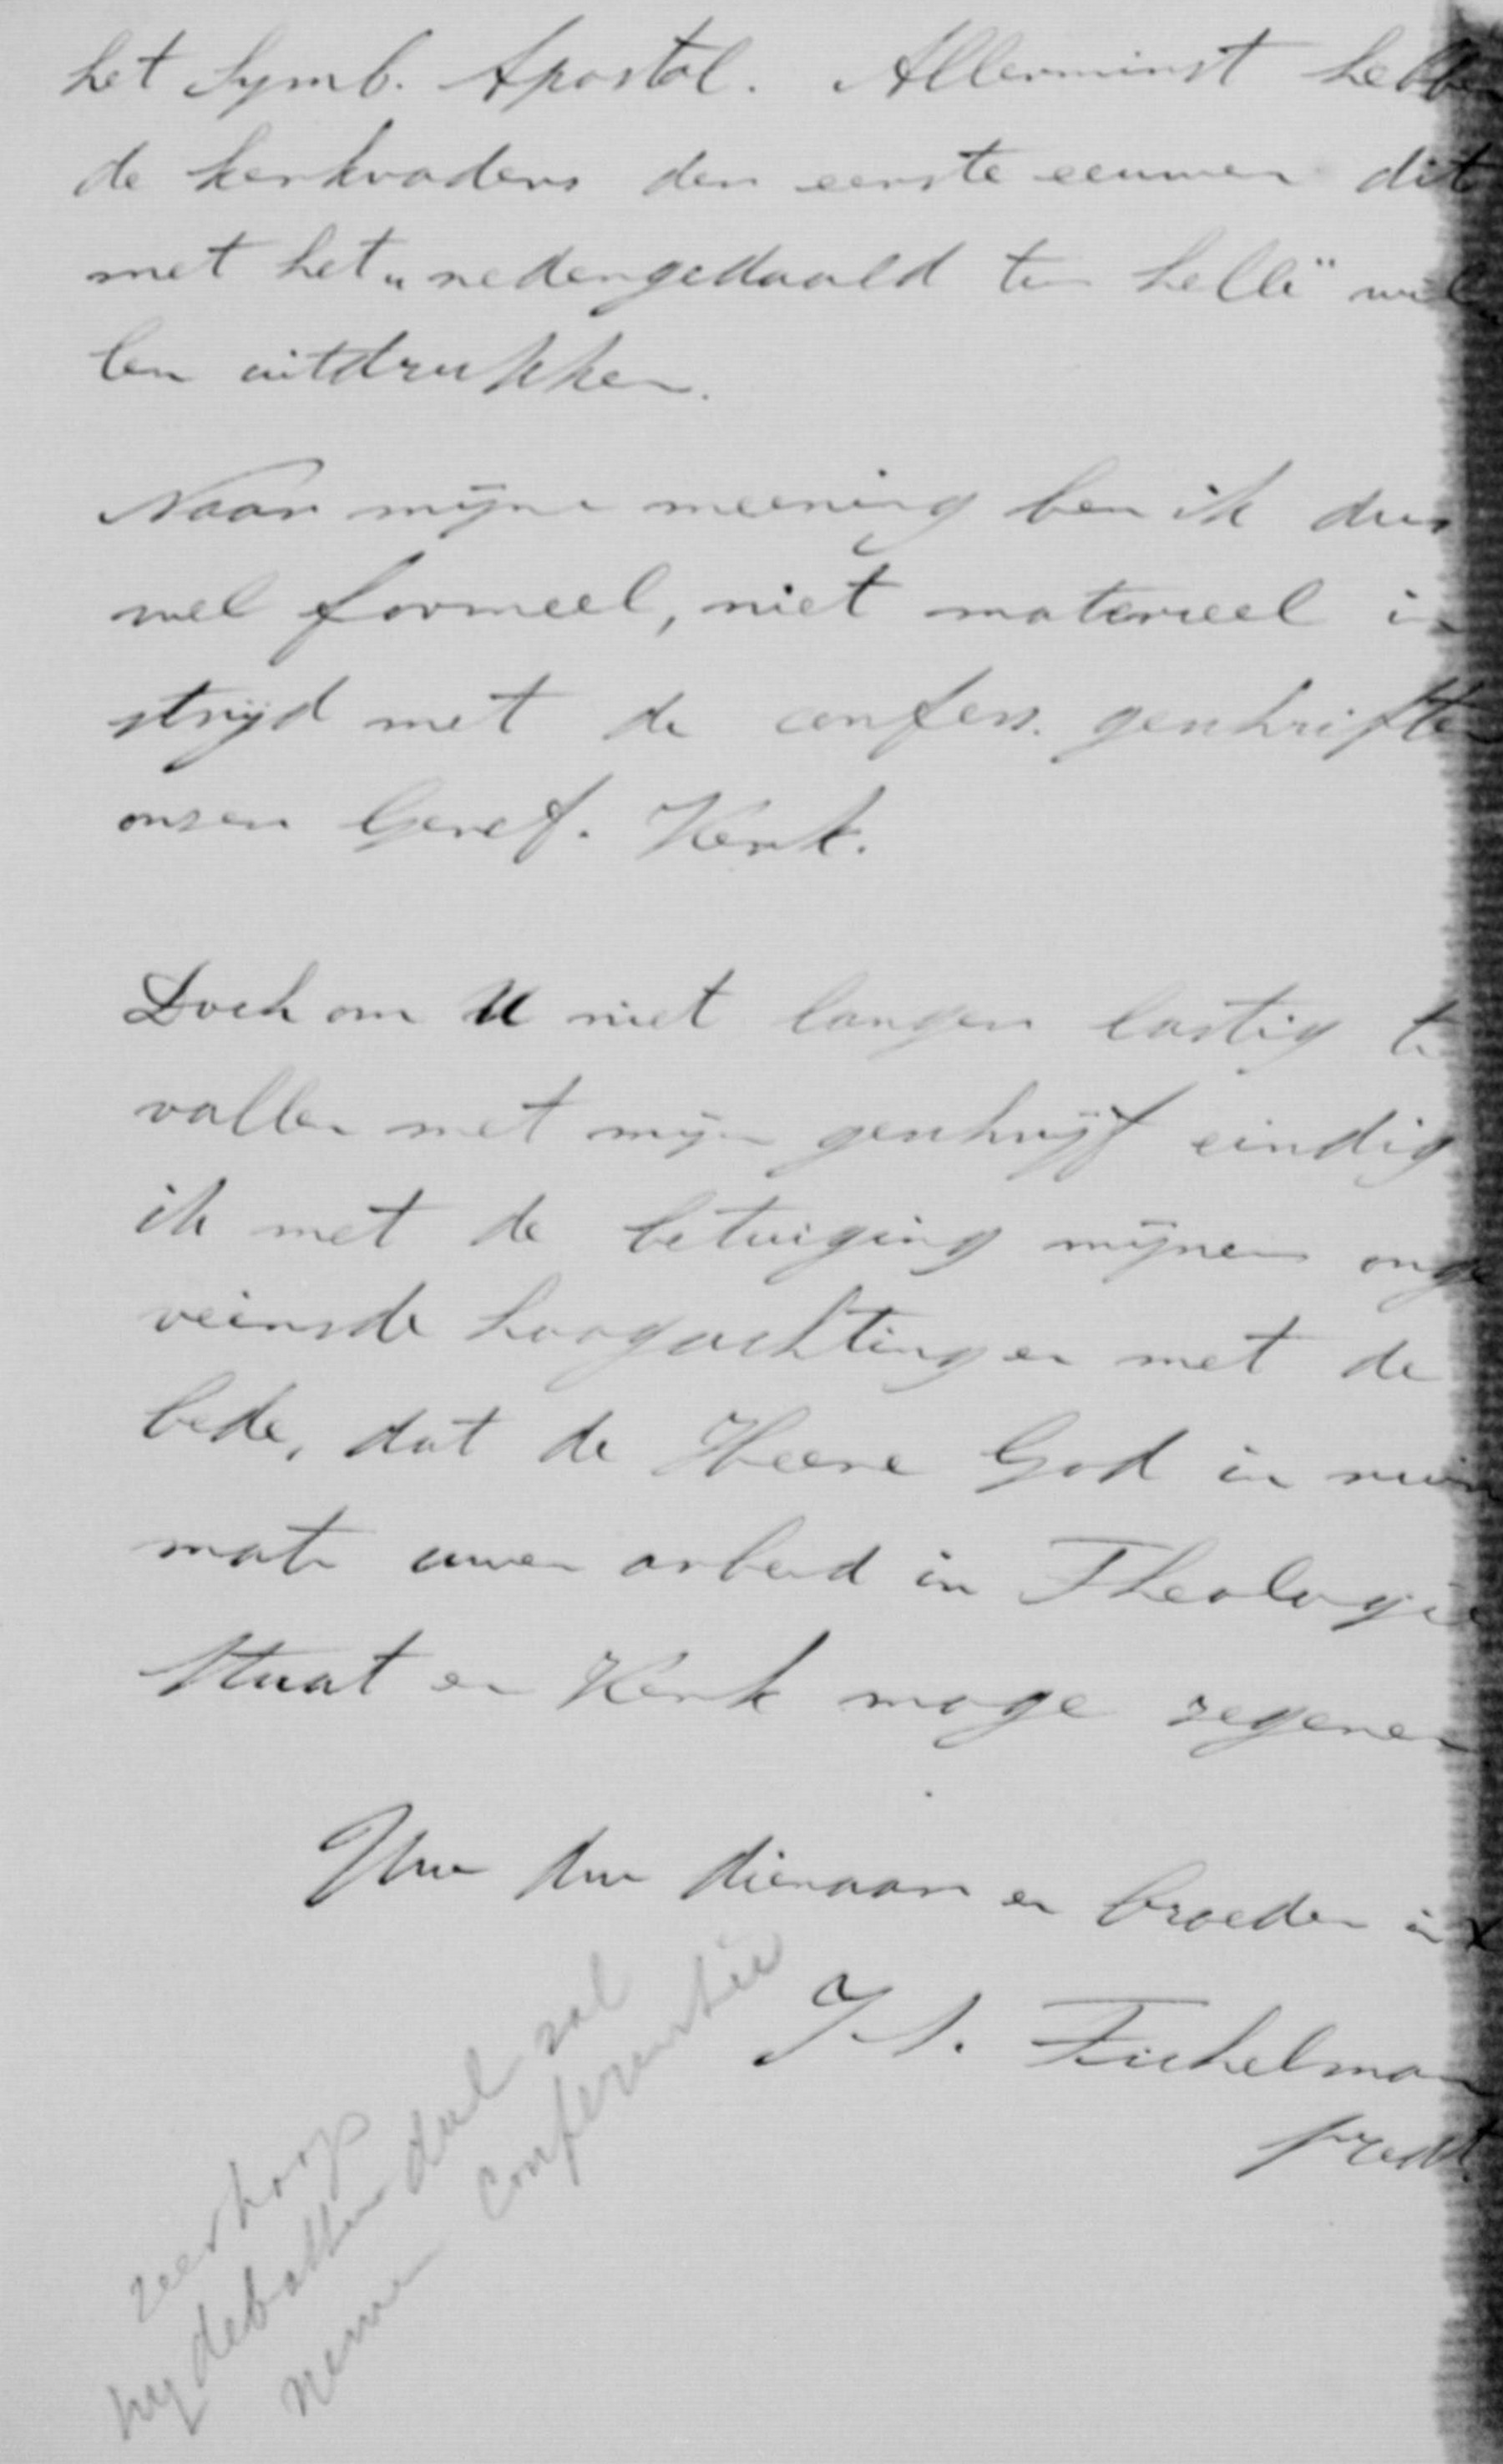 het Symb. Apostol. Allerminst hebben
de kerkvaders der eerste eeuwen dit
met het „nedergedaald ter helle" wil
len uitdrukken.
Naar mijne meening ben ik dus
wel formeel, niet materieel in
strijd met de confess. geschriften
onzer Geref. Kerk.
Doch om U niet langer lastig te
vallen met mijn geschrijf eindig
ik met de betuiging mijner onge
veinsde hoogachting en met de
bede, dat de Heere God in ruime
mate uwen arbeid in Theologie
Staat en Kerk moge zegenen
Uw dw dienaar en broeder in X
J. S. Fichelman
pred.
zeer hoop
hy debatten deel zal
nemen Conferentie